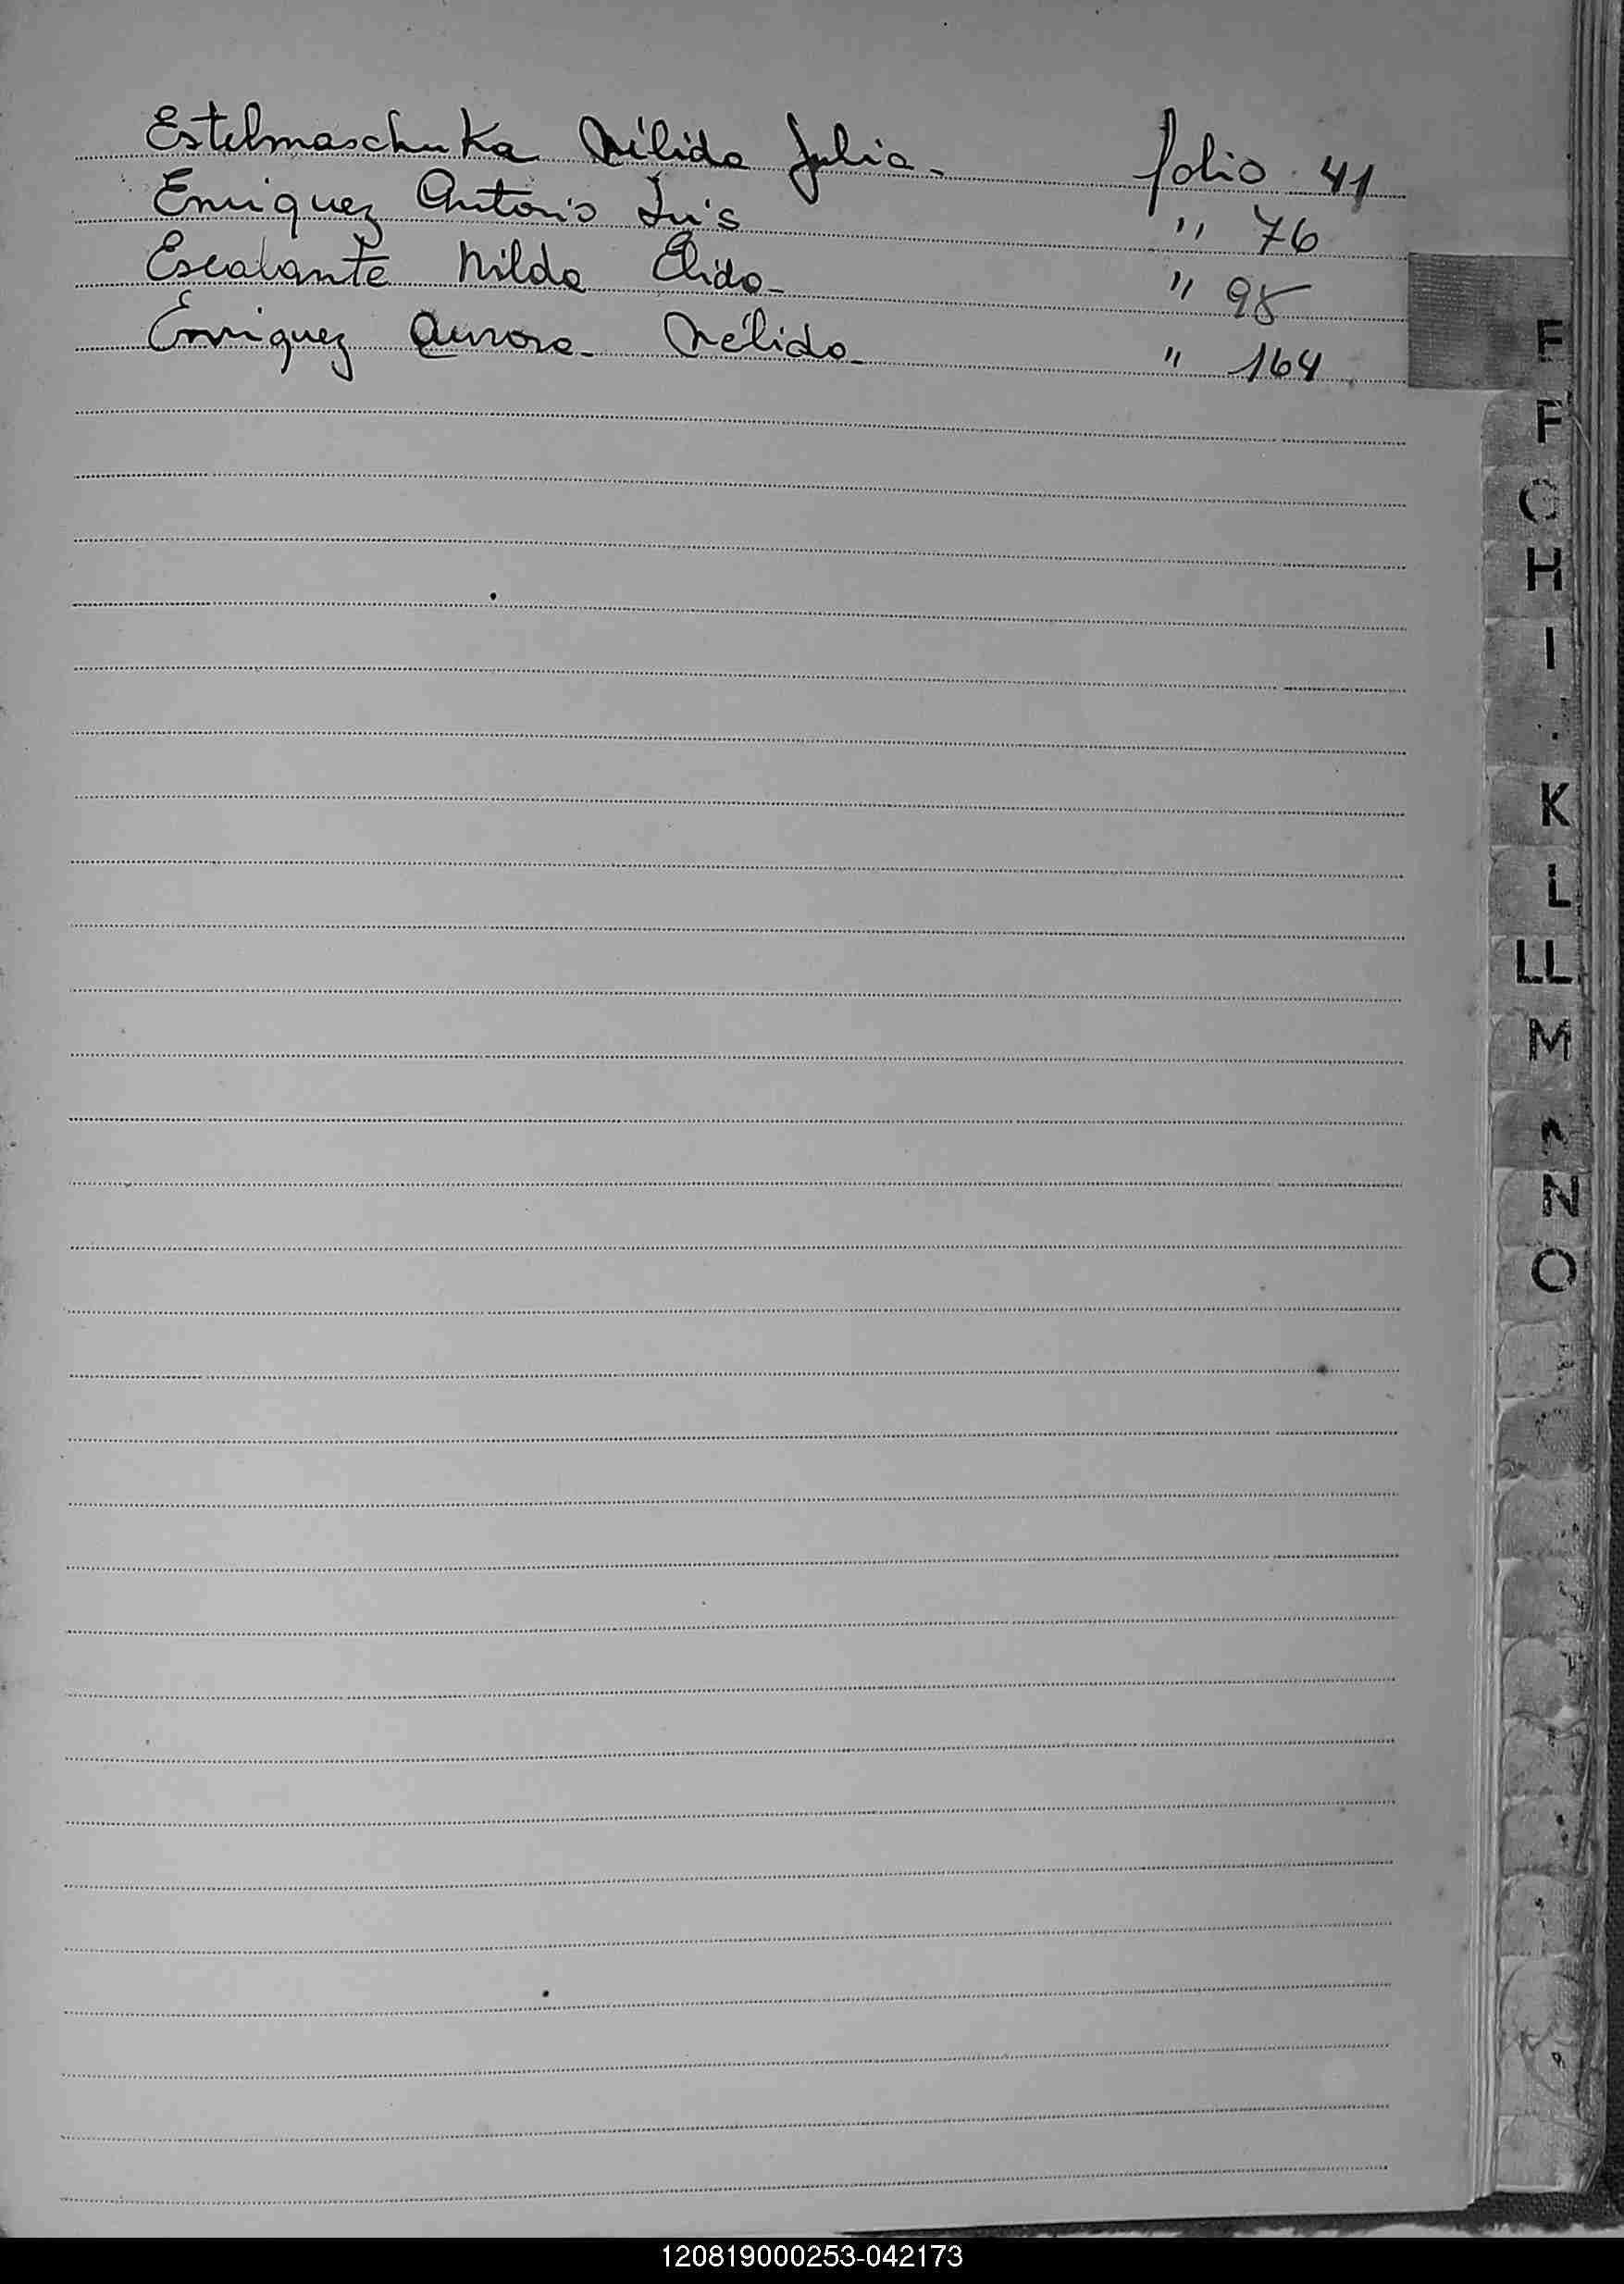 Estelmaschuka Nélida Julia - folio 41
Enriquez Antonio Luis " 76
Escalante Nilda Elida - " 95
Enriquez Aurora - Nélida - " 164
E
F
G
H
I
K
L
LL
M
N
O
120819000253-042173